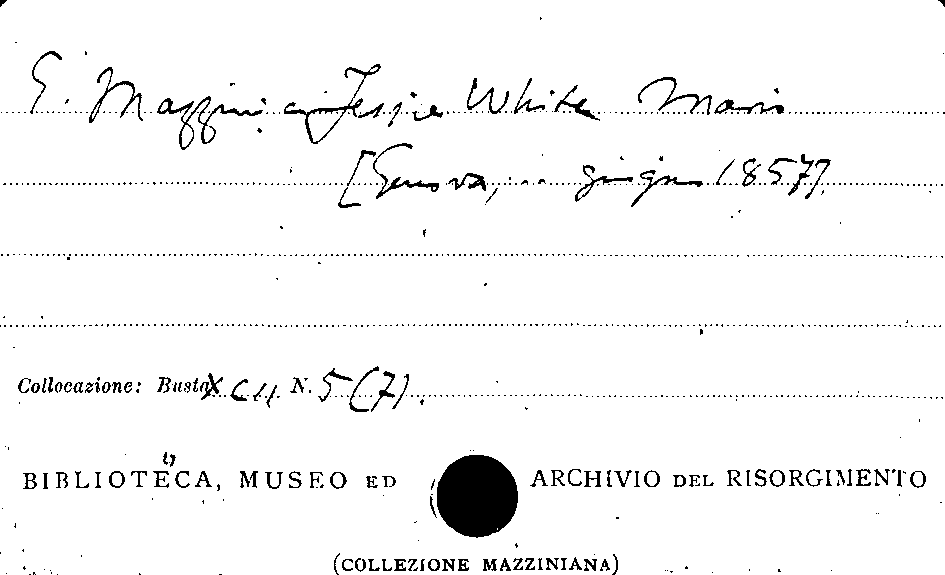 G. Mazzini a Jessie White Mario
[Genova, ... giugno 1857].
Collocazione: Busta N. 5(7).
BIBLIOTECA, MUSEO ED ARCHIVIO DEL RISORGIMENTO
(COLLEZIONE MAZZINIANA)